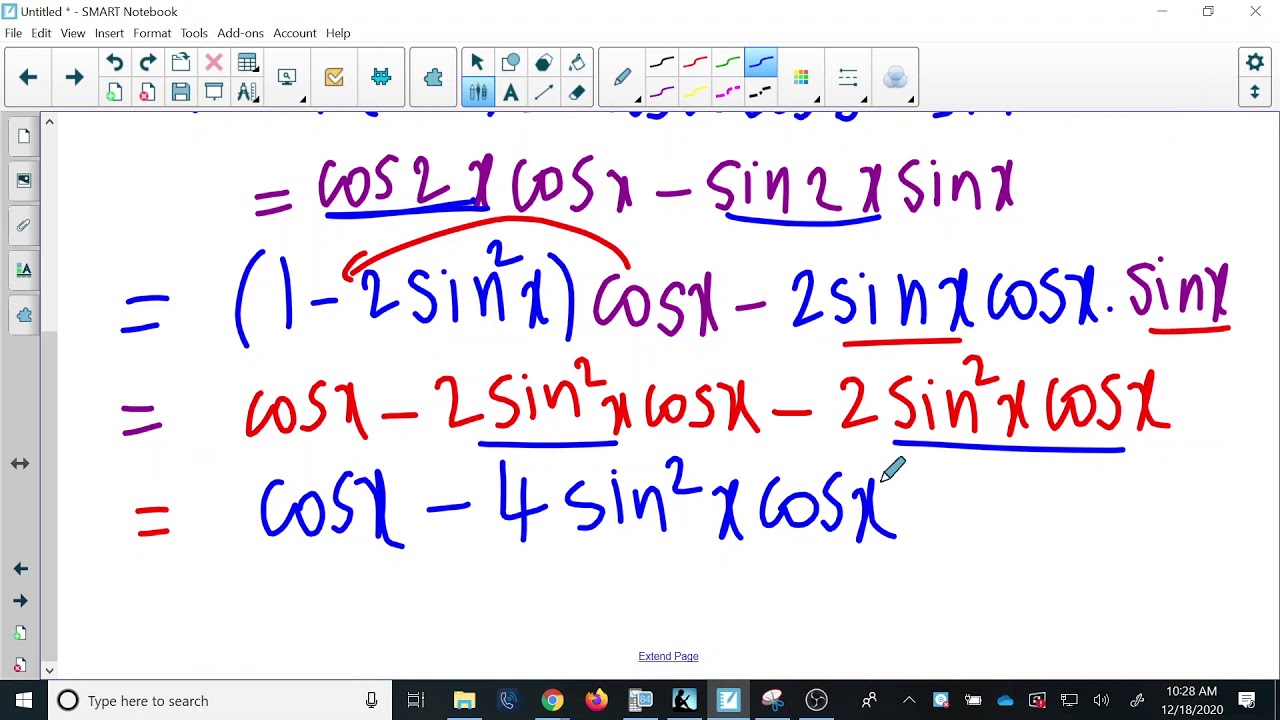 Untitled * - SMART Notebook
File Edit View Insert Format Tools Add-ons Account Help
= cos2x cosx - sin2x sinx
= (1 - 2 sin²x) cosx - 2 sinx cosx . sinx
= cosx - 2 sin²x cosx - 2 sin²x cosx
= cosx - 4 sin²x cosx
Extend Page
Type here to search
10:28 AM
12/18/2020